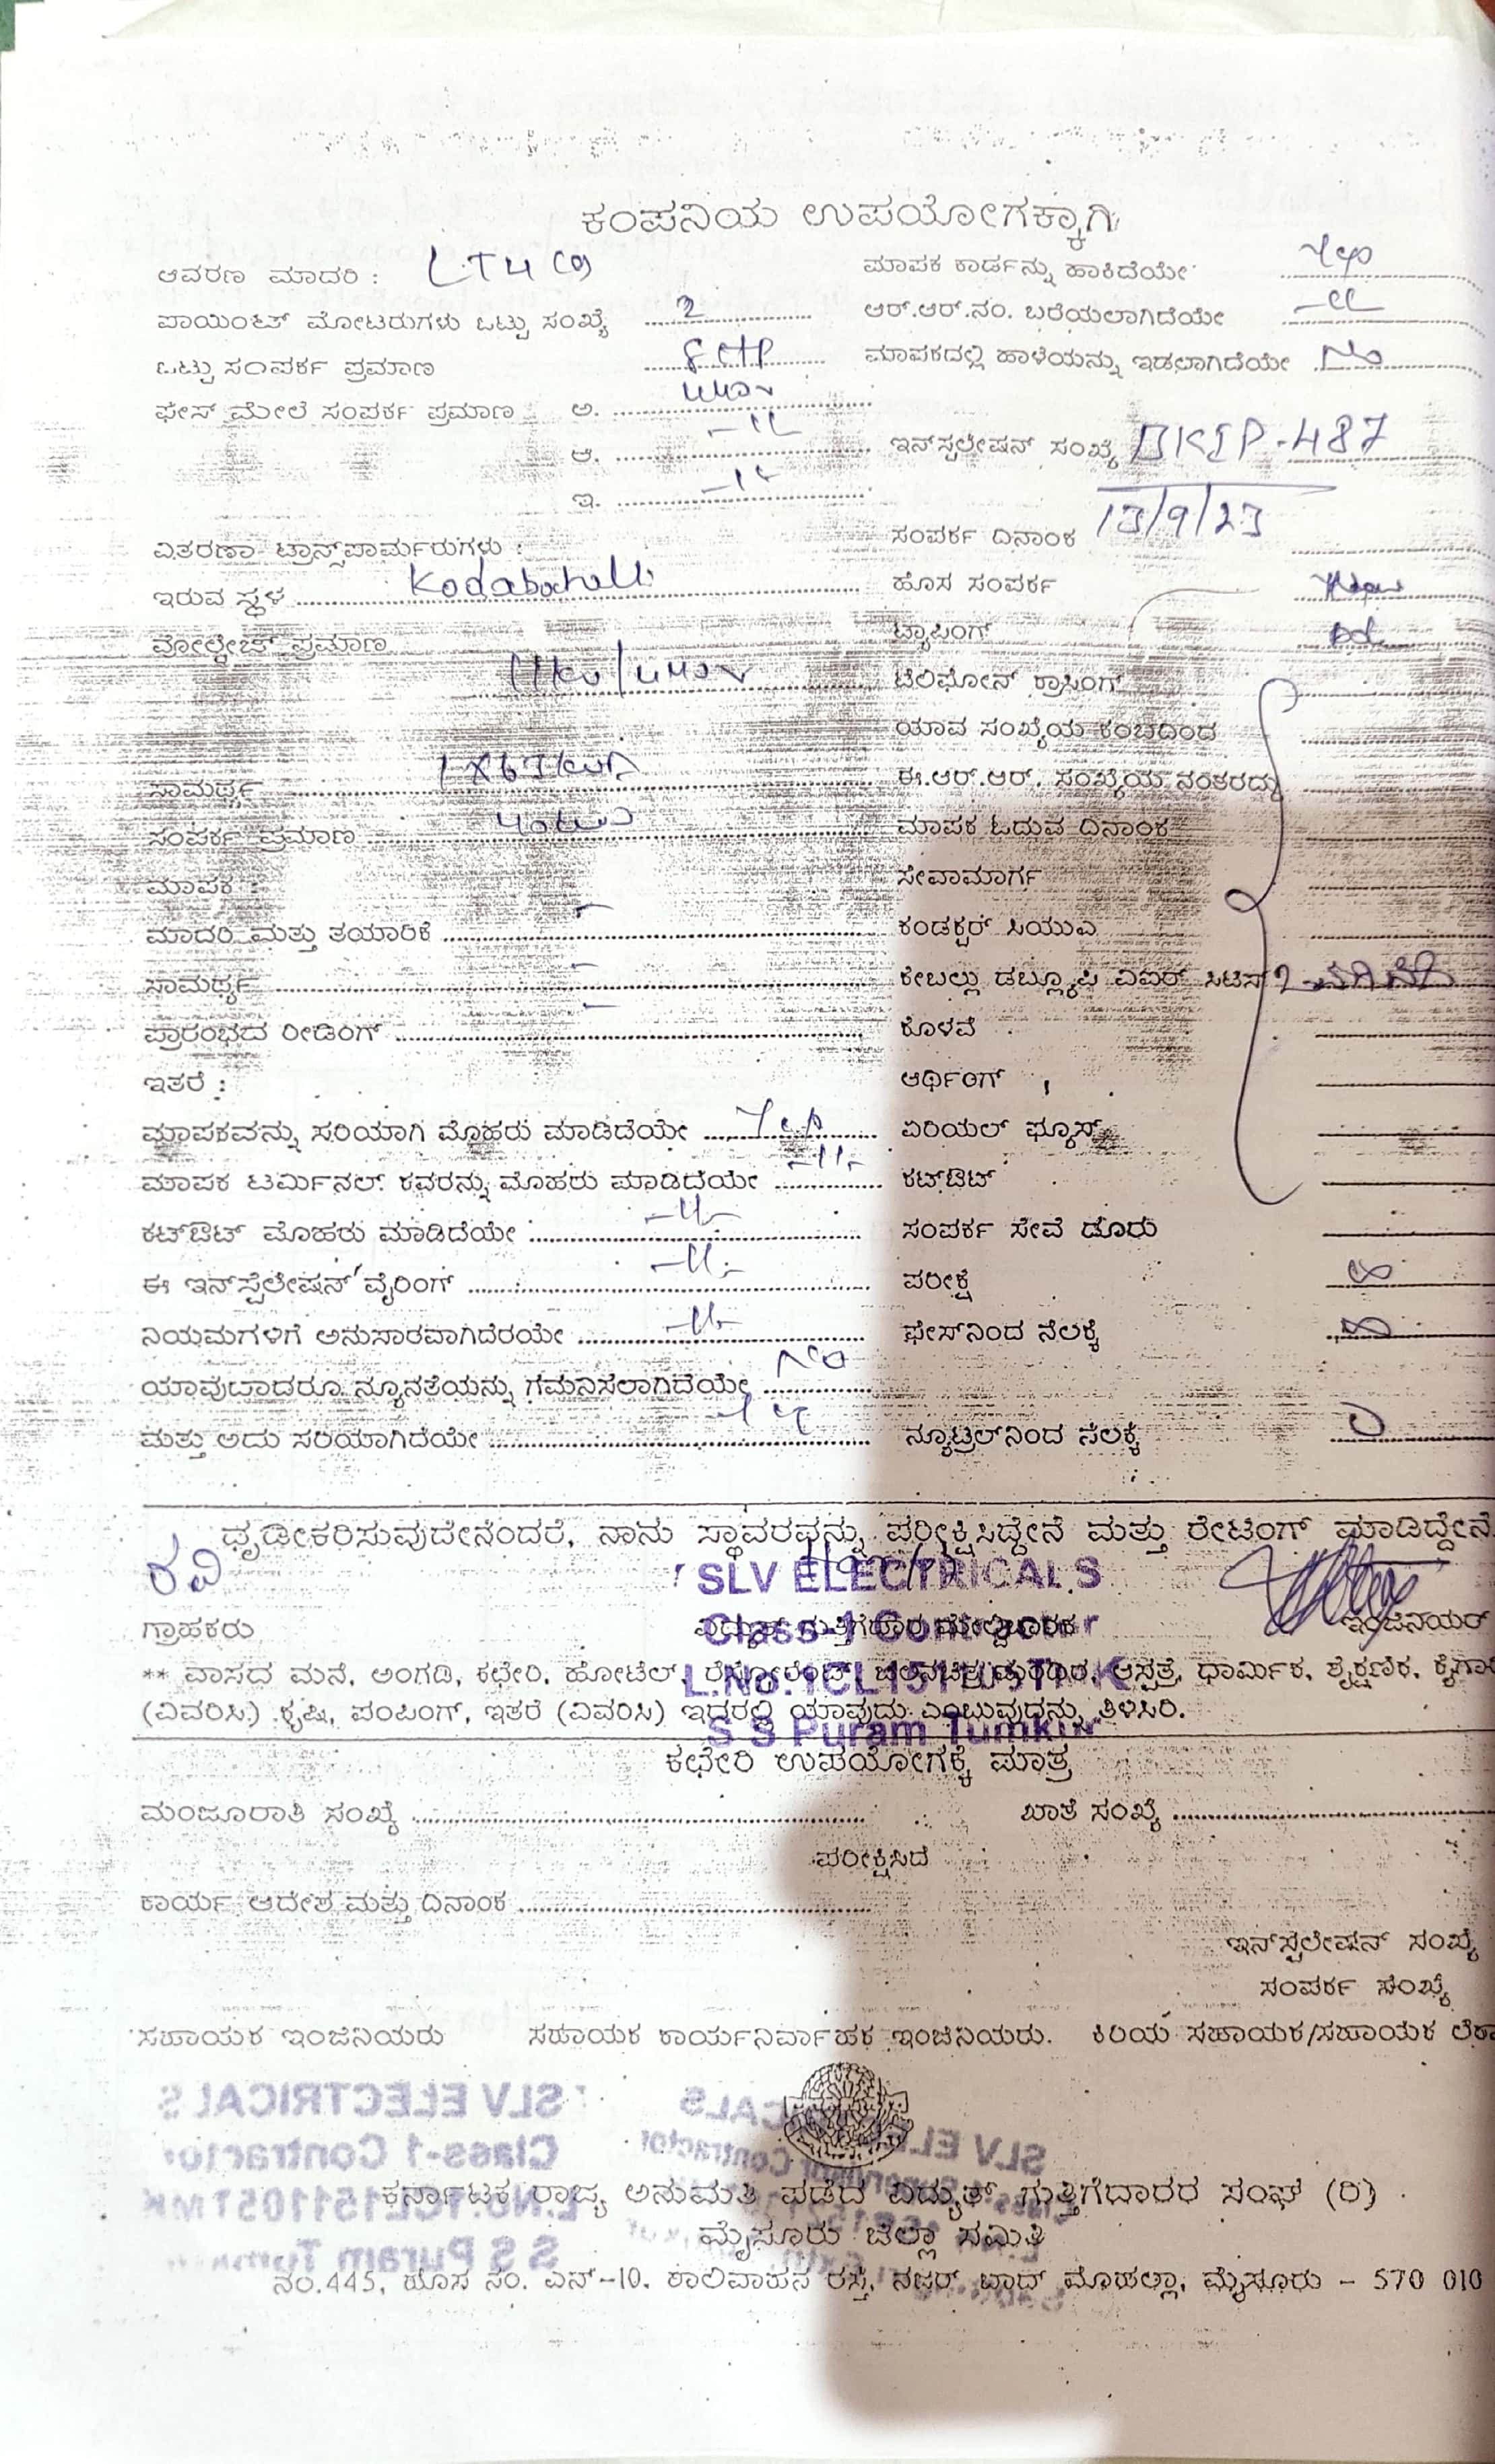 ಕಂಪನಿಯ ಉಪಯೋಗಕ್ಕಾಗಿ
ಆವರಣ ಮಾದರಿ : LT4(a)
ಮಾಪಕ ಕಾರ್ಡನ್ನು ಹಾಕಿದೆಯೇ Yes
ಪಾಯಿಂಟ್ ಮೋಟರುಗಳು ಒಟ್ಟು ಸಂಖ್ಯೆ
ಆರ್.ಆರ್.ನಂ. ಬರೆಯಲಾಗಿದೆಯೇ -11-
ಒಟ್ಟು ಸಂಪರ್ಕ ಪ್ರಮಾಣ
ಮಾಪಕದಲ್ಲಿ ಹಾಳೆಯನ್ನು ಇಡಲಾಗಿದೆಯೇ No
ಫೇಸ್ ಮೇಲೆ ಸಂಪರ್ಕ ಪ್ರಮಾಣ ಅ. 440v
ಆ. -11-
ಇನ್‌ಸ್ಟಲೇಷನ್ ಸಂಖ್ಯೆ BKIP-487
ಇ. -11-
ಸಂಪರ್ಕ ದಿನಾಂಕ 13/9/23
ವಿತರಣಾ ಟ್ರಾನ್ಸ್‌ಪಾರ್ಮರುಗಳು :
ಇರುವ ಸ್ಥಳ
ಹೊಸ ಸಂಪರ್ಕ
ವೋಲ್ಟೇಜ್ ಪ್ರಮಾಣ 11kv/440v
ಟ್ಯಾಪಿಂಗ್
ಟೆಲಿಫೋನ್ ಕ್ರಾಸಿಂಗ್
ಯಾವ ಸಂಖ್ಯೆಯ ಕಂಬದಿಂದ
ಸಾಮರ್ಥ್ಯ 1X63kVA
ಈ.ಆರ್.ಆರ್. ಸಂಖ್ಯೆಯ ನಂತರದ್ದು
ಸಂಪರ್ಕ ಪ್ರಮಾಣ
ಮಾಪಕ ಓದುವ ದಿನಾಂಕ
ಮಾಪಕ :
ಸೇವಾಮಾರ್ಗ
ಮಾದರಿ ಮತ್ತು ತಯಾರಿಕೆ –
ಕಂಡಕ್ಟರ್ ಸಿಯುಎ
ಸಾಮರ್ಥ್ಯ –
ಕೇಬಲ್ಲು ಡಬ್ಲ್ಯೂಪಿ ವಿಐಆರ್ ಸಿಟಿಸ್
ಪ್ರಾರಂಭದ ರೀಡಿಂಗ್ –
ಕೊಳವೆ
ಇತರೆ :
ಆರ್ಥಿಂಗ್
ಮಾಪಕವನ್ನು ಸರಿಯಾಗಿ ಮೊಹರು ಮಾಡಿದೆಯೇ Yes
ಏರಿಯಲ್ ಫ್ಯೂಸ್
ಮಾಪಕ ಟರ್ಮಿನಲ್ ಕವರನ್ನು ಮೊಹರು ಮಾಡಿದೆಯೇ -11-
ಕಟ್‌ಔಟ್
ಕಟ್‌ಔಟ್ ಮೊಹರು ಮಾಡಿದೆಯೇ -11-
ಸಂಪರ್ಕ ಸೇವೆ ಡೂರು
ಈ ಇನ್‌ಸ್ಪೆಲೇಷನ್ ವೈರಿಂಗ್ -11-
ಪರೀಕ್ಷೆ ∞
ನಿಯಮಗಳಿಗೆ ಅನುಸಾರವಾಗಿದೆರಯೇ -11-
ಫೇಸ್‌ನಿಂದ ನೆಲಕ್ಕೆ ∞
ಯಾವುದಾದರೂ ನ್ಯೂನತೆಯನ್ನು ಗಮನಿಸಲಾಗಿದೆಯೇ No
ಮತ್ತು ಅದು ಸರಿಯಾಗಿದೆಯೇ
ನ್ಯೂಟ್ರಲ್‌ನಿಂದ ನೆಲಕ್ಕೆ 0
ಧೃಡೀಕರಿಸುವುದೇನೆಂದರೆ, ನಾನು ಸ್ಥಾವರವನ್ನು ಪರೀಕ್ಷಿಸಿದ್ದೇನೆ ಮತ್ತು ರೇಟಿಂಗ್ ಮಾಡಿದ್ದೇನೆ
ರವಿ
SLV ELECTRICALS
Class-1 Contractor
ಗ್ರಾಹಕರು
ವಿದ್ಯುತ್ ಗುತ್ತಿಗೆದಾರ ಮೇಲ್ವಿಚಾರಕ
ಇಂಜಿನಿಯರ್
L.No.1CL151105TMK
** ವಾಸದ ಮನೆ, ಅಂಗಡಿ, ಕಛೇರಿ, ಹೋಟೆಲ್, ರೆಸ್ಟೋರೆಂಟ್, ಚಲನಚಿತ್ರ ಮಂದಿರ, ಆಸ್ಪತ್ರೆ, ಧಾರ್ಮಿಕ, ಶೈಕ್ಷಣಿಕ,
(ವಿವರಿಸಿ) ಕೃಷಿ, ಪಂಪಿಂಗ್, ಇತರೆ (ವಿವರಿಸಿ) ಇದರಲ್ಲಿ ಯಾವುದು ಎಂಬುವುದನ್ನು ತಿಳಿಸಿರಿ.
S S Puram Tumkur
ಕಛೇರಿ ಉಪಯೋಗಕ್ಕೆ ಮಾತ್ರ
ಮಂಜೂರಾತಿ ಸಂಖ್ಯೆ
ಖಾತೆ ಸಂಖ್ಯೆ
ಪರೀಕ್ಷಿಸಿದೆ
ಕಾರ್ಯ ಆದೇಶ ಮತ್ತು ದಿನಾಂಕ
ಇನ್‌ಸ್ಟಲೇಷನ್ ಸಂಖ್ಯೆ
ಸಂಪರ್ಕ ಸಂಖ್ಯೆ
ಸಹಾಯಕ ಇಂಜಿನಿಯರು ಸಹಾಯಕ ಕಾರ್ಯನಿರ್ವಾಹಕ ಇಂಜಿನಿಯರು. ಕಿರಿಯ ಸಹಾಯಕ/ಸಹಾಯಕ
SLV ELECTRICALS
Class-1 Contractor
ಕರ್ನಾಟಕ ರಾಜ್ಯ ಅನುಮತಿ ಪಡೆದ ವಿದ್ಯುತ್ ಗುತ್ತಿಗೆದಾರರ ಸಂಘ (ರಿ)
L.No.1CL151105TMK
ಮೈಸೂರು ಜಿಲ್ಲಾ ಸಮಿತಿ
S S Puram Tumkur
ನಂ.445, ಹೊಸ ನಂ. ಎನ್-10, ಕಾಲಿವಾಹನ ರಸ್ತೆ, ನಜರ್ ಬಾದ್ ಮೊಹಲ್ಲಾ, ಮೈಸೂರು - 570 010